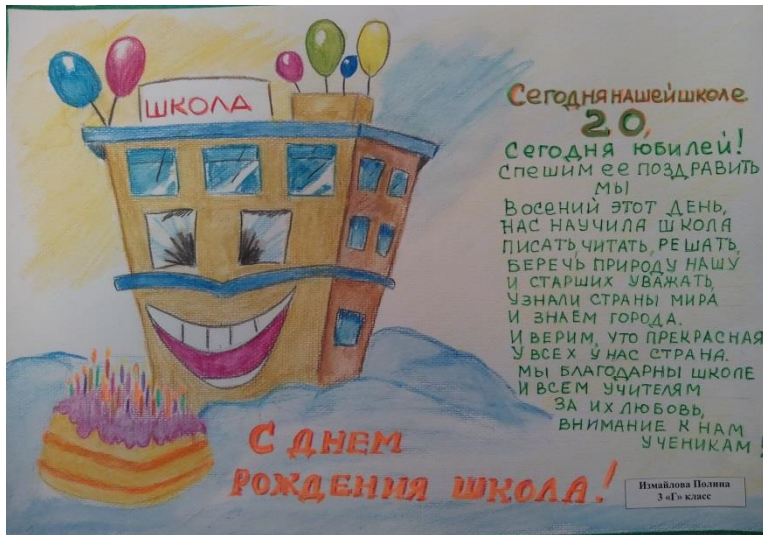 ШКОЛА
Сегодня нашей школе
20,
Сегодня юбилей!
Спешим ее поздравить
мы
Восений этот день,
нас научила школа
писать, читать, решать,
беречь природу нашу
и старших уважать,
узнали страны мира
и знаем города.
И верим, что прекрасная
у всех у нас страна.
Мы благодарны школе
и всем учителям
за их любовь,
внимание к нам
ученикам!
С ДНЕМ
РОЖДЕНИЯ ШКОЛА!
Измайлова Полина
3 «Г» класс